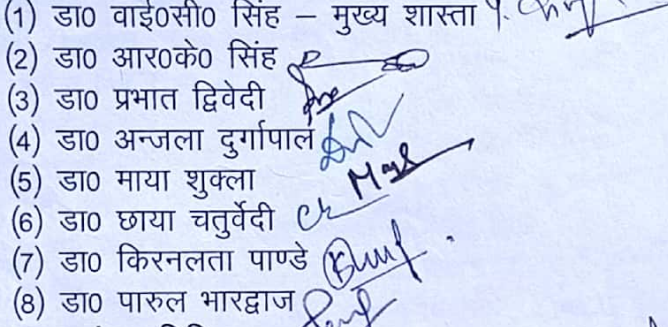 (1) डा० वाई०सी० सिंह – मुख्य शास्ता
(2) डा० आर०के० सिंह
(3) डा० प्रभात द्विवेदी
(4) डा० अन्जला दुर्गापाल
(5) डा० माया शुक्ला
(6) डा० छाया चतुर्वेदी
(7) डा० किरनलता पाण्डे
(8) डा० पारुल भारद्वाज